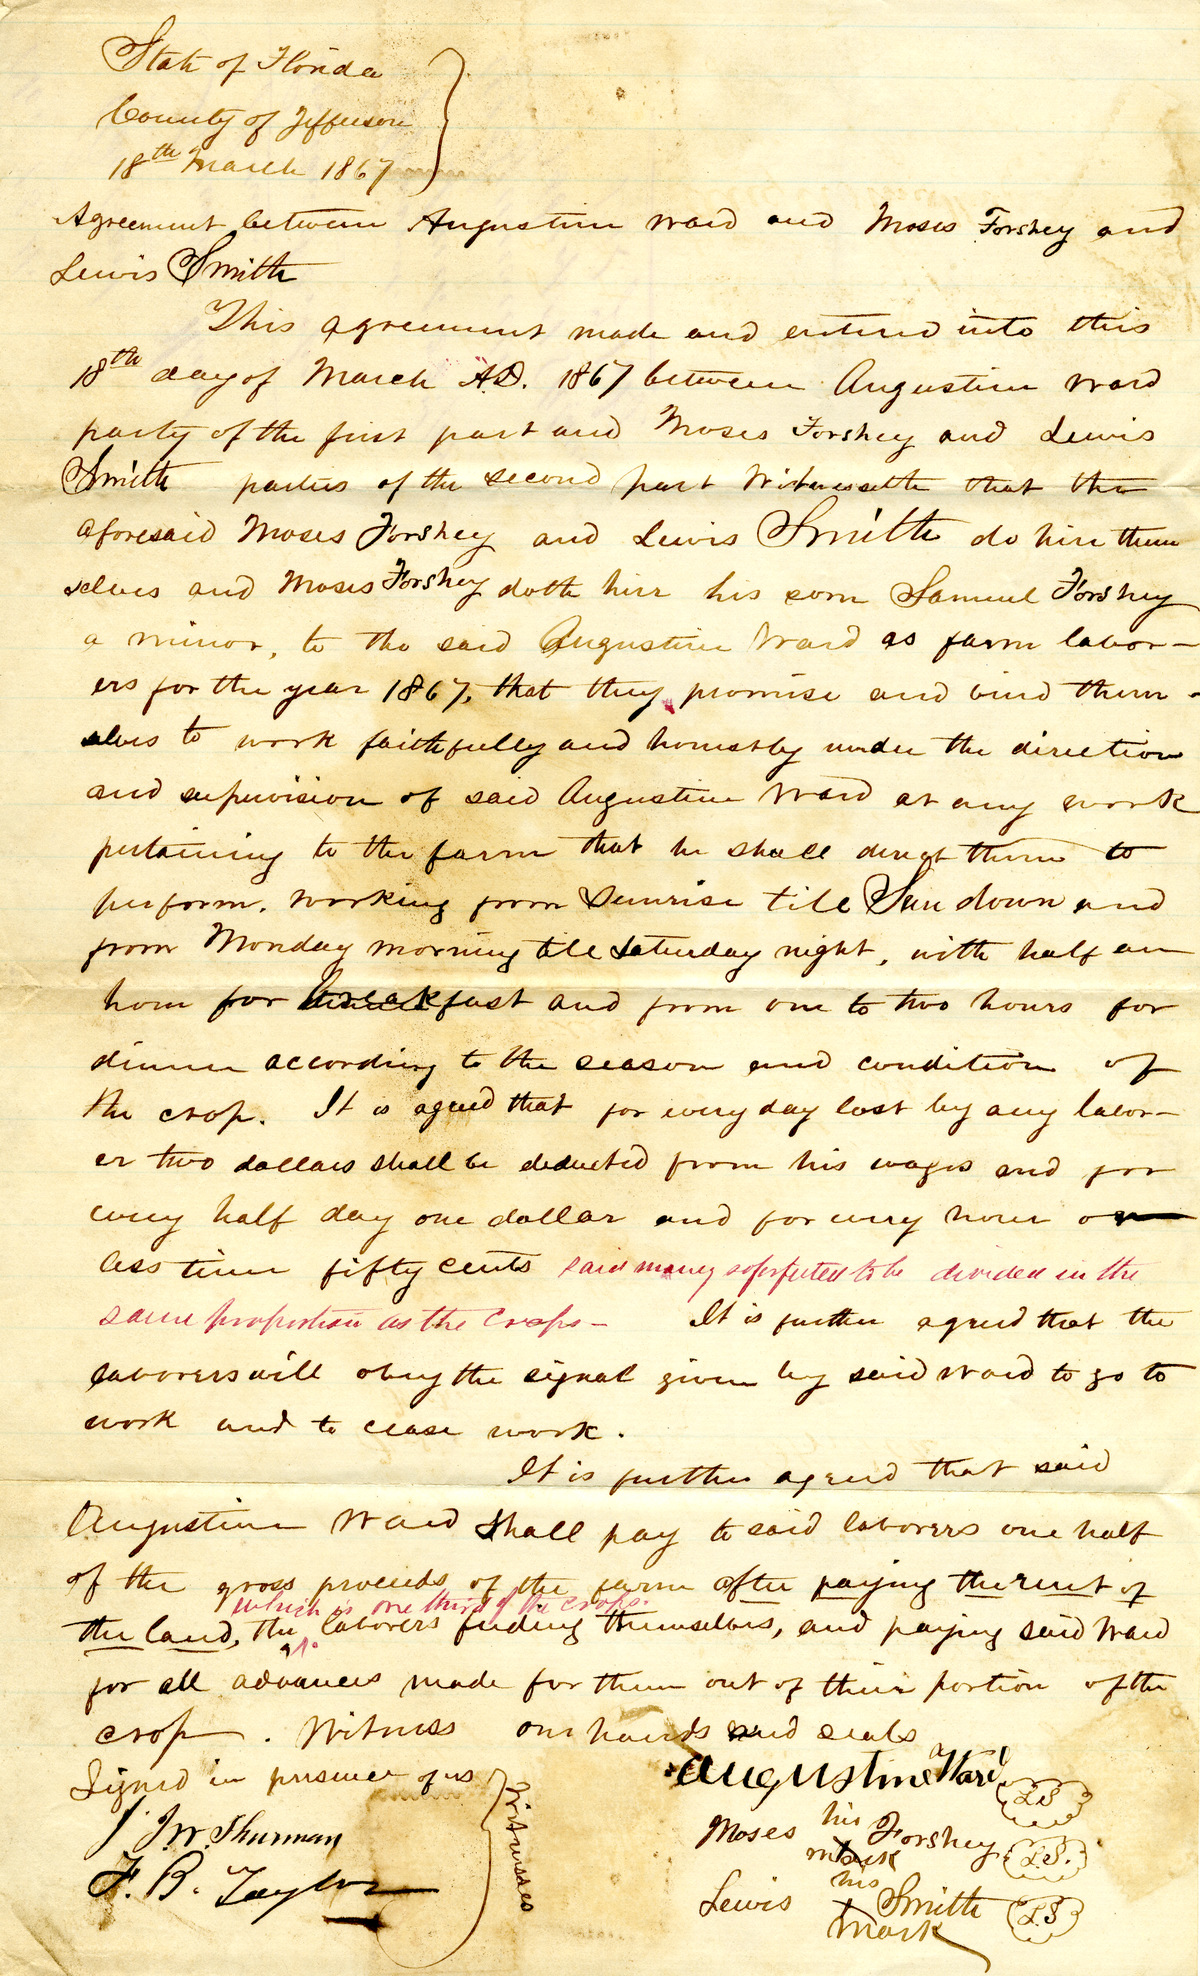 State of Florida
County of Jefferson
18th March 1867
Agreement between Augustine Ward and Moses Forshey and
Lewis Smith
This agreement made and entered into this
18th day of March A.D. 1867 between Augustine Ward
party of the first part and Moses Forshey and Lewis
Smith parties of the second part Witnesseth that the
aforesaid Moses Forshey and Lewis Smith do hire them
selves and Moses Forshey doth hire his son Samuel Forshey
a minor, to the said Augustine Ward as farm labor-
ers for the year 1867, that they promise and bind them-
selves to work faithfully and honestly under the direction
and supervision of said Augustine Ward at any work
pertaining to the farm that he shall direct them to
perform, working from Sunrise till Sun down and
from Monday morning till Saturday night, with half an
hour for breakfast and from one to two hours for
dinner according to the season and condition of
the crop. It is agreed that for every day lost by any labor-
er two dollars shall be deducted from his wages and for
every half day one dollar and for every hour or
less time fifty cents said money so forfeited to be divided in the
same proportion as the Crops- It is further agreed that the
laborers will obey the signal given by said Ward to go to
work and to cease work.
It is further agreed that said
Augustine Ward shall pay to said laborers one half
of the gross proceeds of the farm after paying the rent of
which is one third of the crops.
the land, the laborers finding themselves, and paying said Ward
for all advances made for them out of their portion of the
crop. Witness our hands and seals
Signed in presence of us
Witnesses
J. W. Thurman
F. B. Taylor
Augustine Ward LS
his
Moses Forshey L.S.
mark
his
Lewis Smith LS
mark